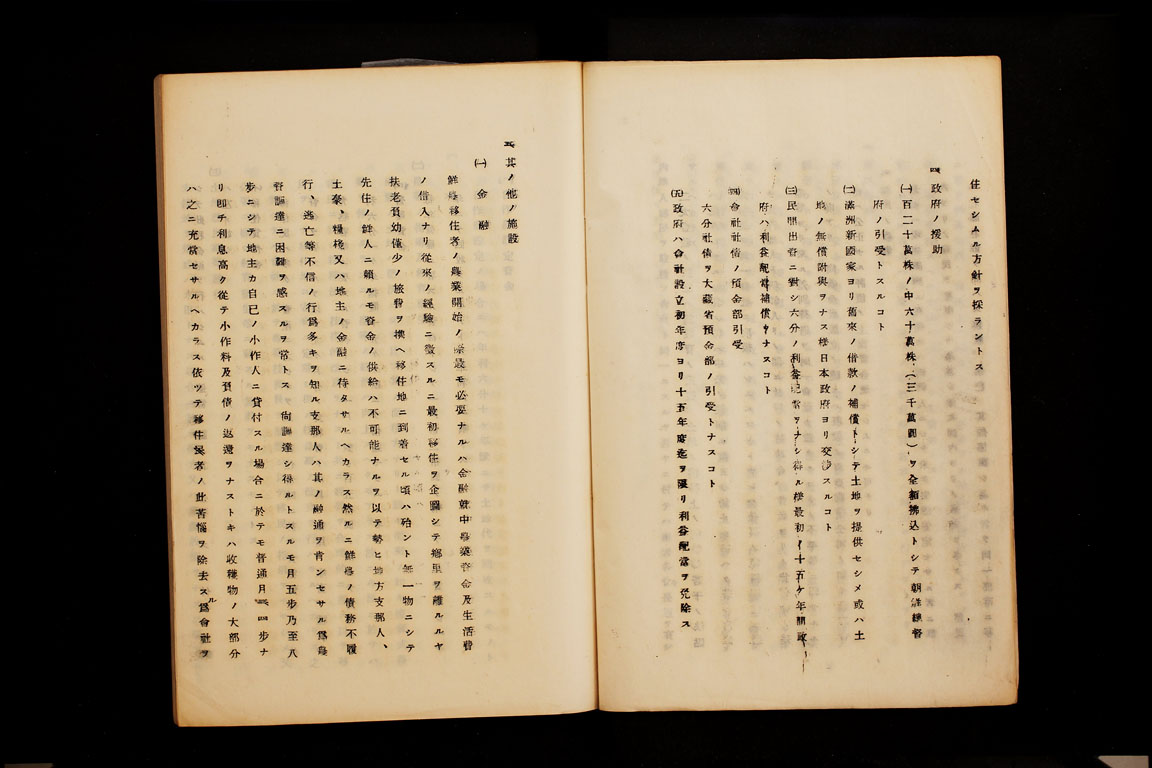 住セシムル方針ヲ採ラントス
四 政府ノ援助
(一) 百二十萬株ノ中六十萬株、(三千萬圓)ヲ全額拂込トシテ朝鮮總督
府ノ引受トスルコト
(二) 滿洲新國家ヨリ舊來ノ借款ノ補償トシテ土地ヲ提供セシメ或ハ土
地ノ無償附與ヲナス樣日本政府ヨリ交渉スルコト
(三) 民間出資ニ對シ六分ノ利益配當ヲナシ得ル樣最初ノ十五ケ年間政
府ハ利益配當補償ヲナスコト
(四) 會社社債ノ預金部引受
六分社債ヲ大藏省預金部ノ引受トナスコト
(五) 政府ハ會社設立初年度ヨリ十五年度迄ヲ限リ利益配當ヲ免除ス
五 其ノ他ノ施設
(一) 金融
鮮農移住者ノ農業開始ノ際最モ必要ナルハ金融就中農業資金及生活費
ノ借入ナリ從來ノ經驗ニ徵スルニ最初移住ヲ企圖シテ鄕里ヲ離ルルヤ
扶老負幼僅少ノ旅費ヲ携ヘ移住地ニ到着セル頃ハ殆ント無一物ニシテ
先住ノ鮮人ニ賴ルモ資金ノ供給ハ不可能ナルヲ以テ勢ヒ地方支那人、
土豪、糧棧又ハ地主ノ金融ニ待タサルヘカラス然ルニ鮮農ノ債務不履
行、逃亡等不信ノ行爲多キヲ知ル支那人ハ其ノ融通ヲ肯ンセサル爲農
資調達ニ困難ヲ感スルヲ常トス 尙調達シ得ルトスルモ月五步乃至八
步ニシテ地主カ自己ノ小作人ニ貸付スル場合ニ於テモ普通月三、四步ナ
リ卽チ利息高ク從テ小作料及負債ノ返還ヲナストキハ收穫物ノ大部分
ハ之ニ充當セサルヘカラス依ツテ移住民者ノ此苦惱ヲ除去スル爲會社ヲ